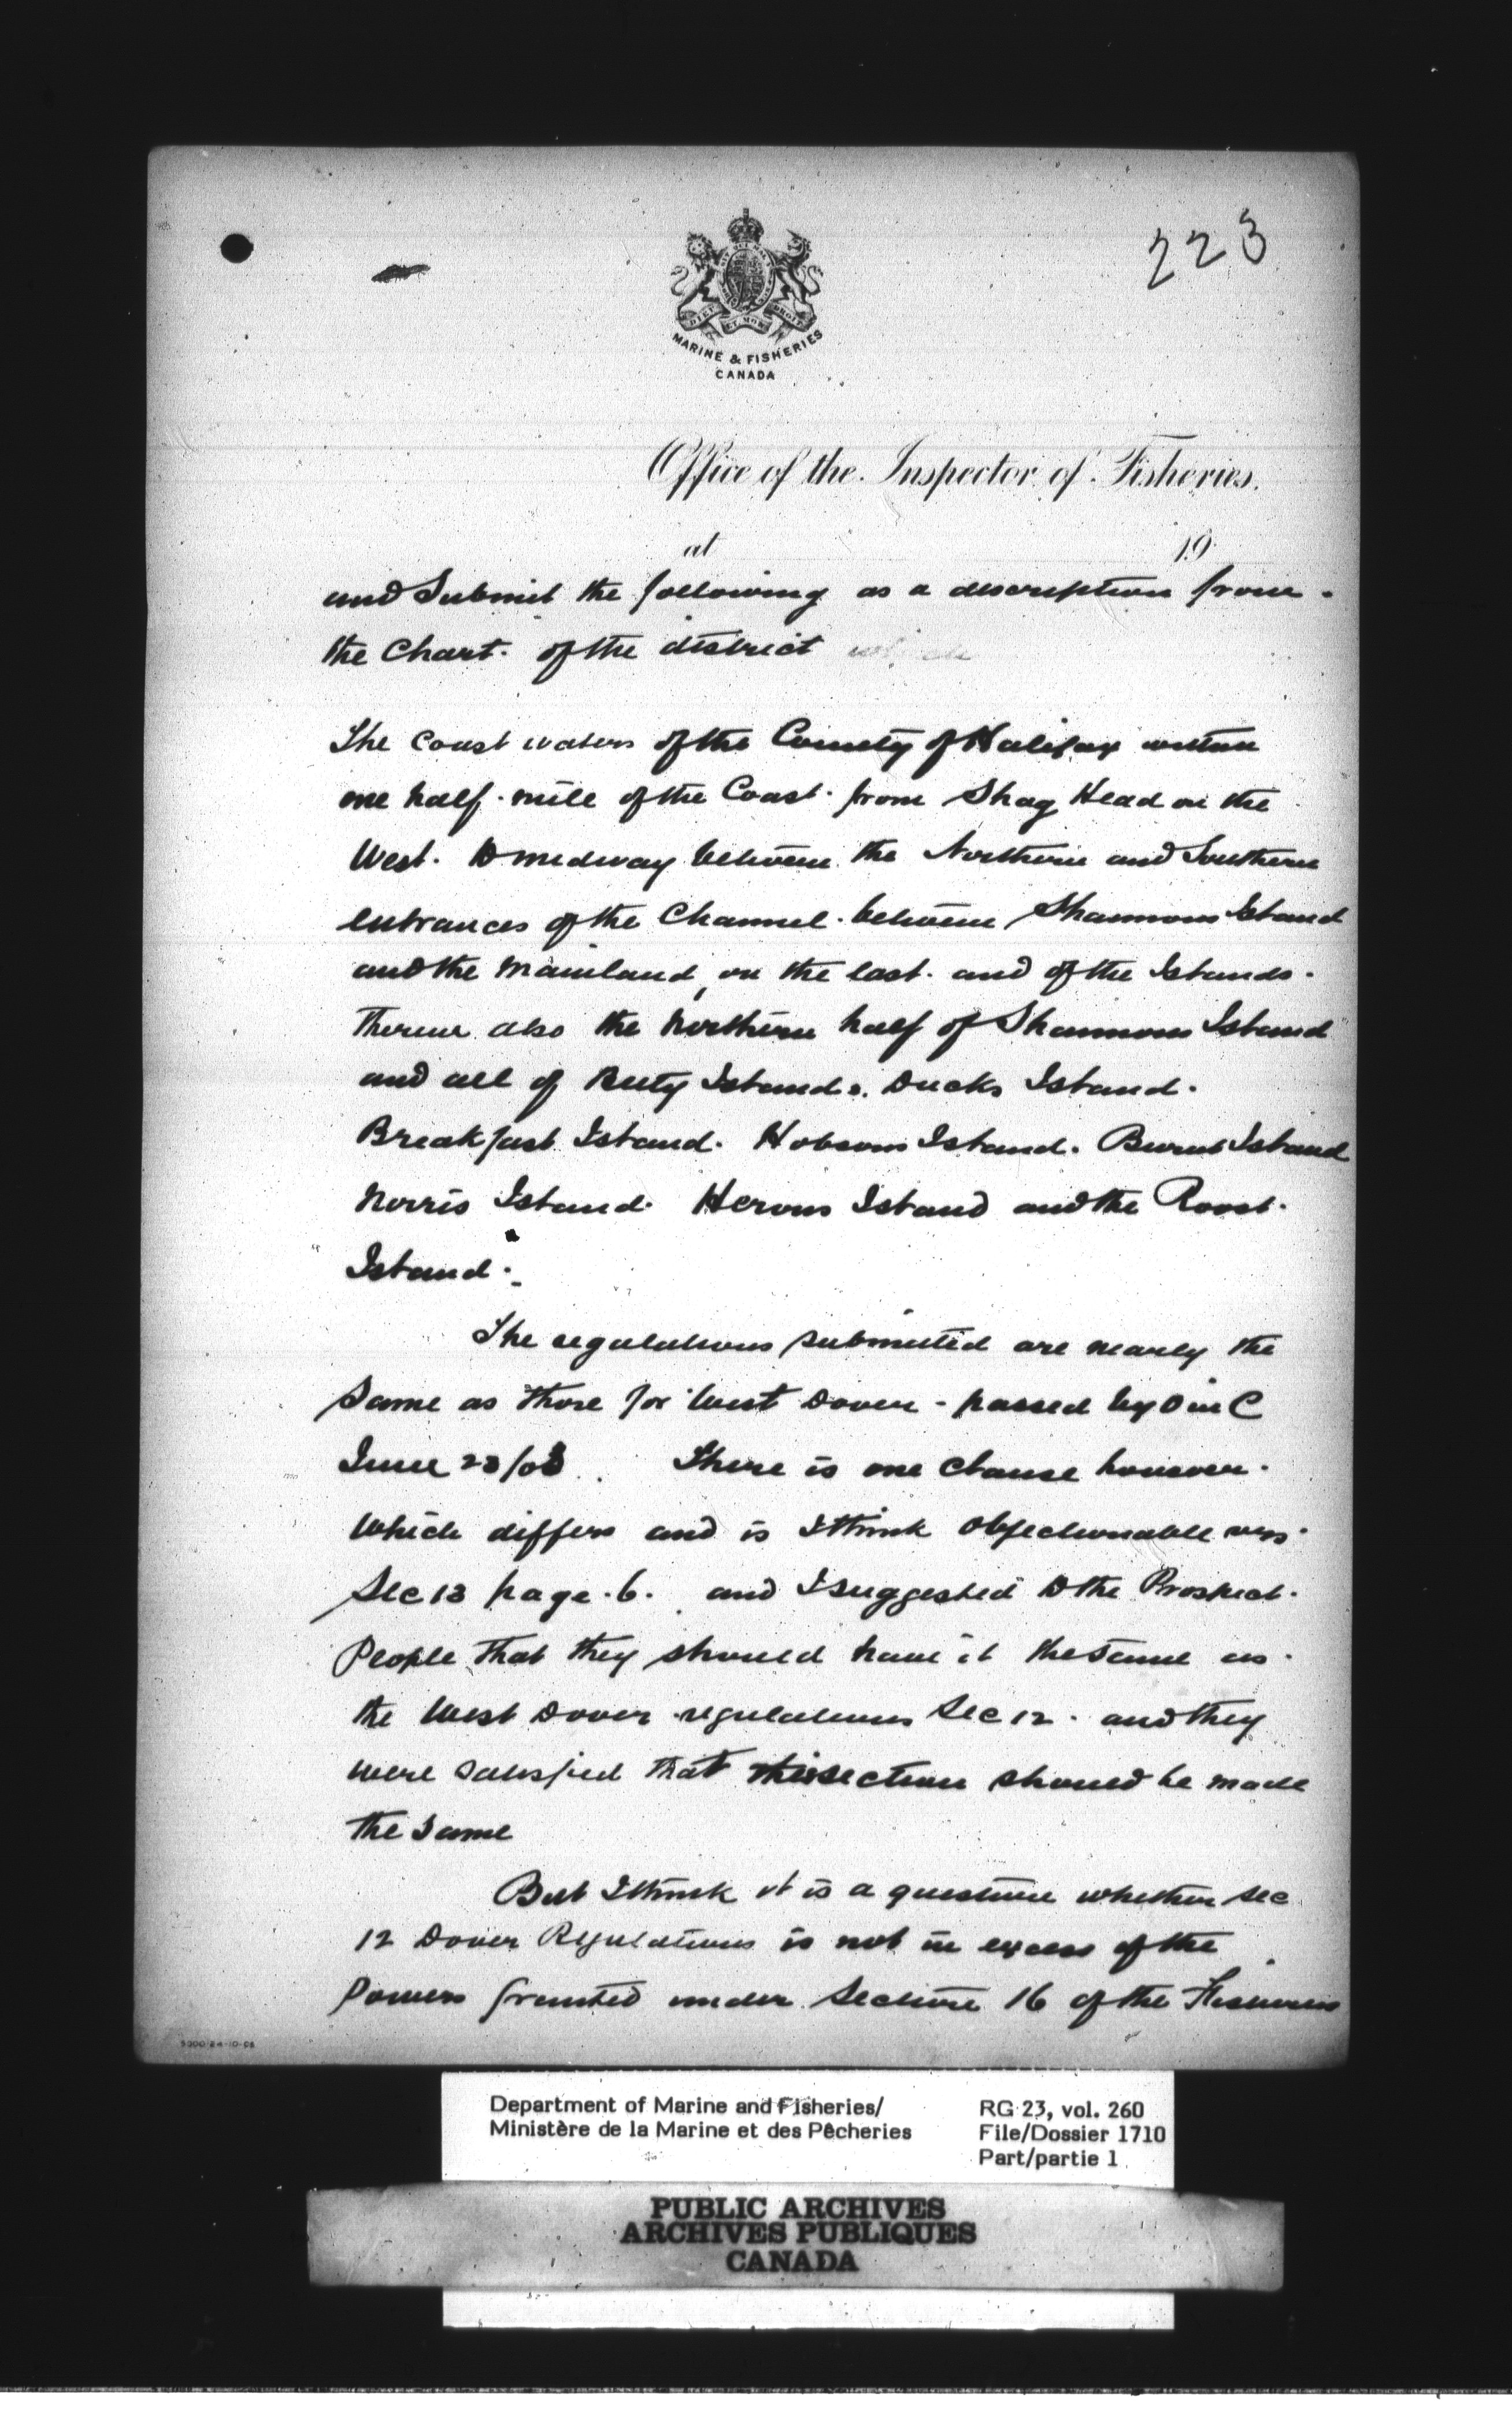 223
DIEU ET MON DROIT
MARINE & FISHERIES
CANADA
Office of the Inspector of Fisheries.
at 19
and Submit the following as a description from
the Chart. of the district which
The Coast waters of the County of Halifax within
one half mile of the Coast from Shag Head on the
West. to midway between the Northern and Southern
entrances of the Channel between Shannons Island
and the Mainland, on the East. and of the Islands
therein also the Northern half of Shannons Island
and all of Betty Island. Ducks Island.
Breakfast Island. Hobsons Island. Burnt Island
Norris Island. Herons Island and the Roost
Island.
The regulations submitted are nearly the
Same as those for West Dover - passed by O in C
June 23/03. There is one Clause however.
Which differs and is I think objectionable
Sec 13 page 6. and I suggested to the Prospect
People that they should have it the same as
the West Dover regulations Sec 12. and they
were satisfied that this section should be made
the same
But I think it is a question whether Sec
12 Dover Regulations is not in excess of the
Powers granted under Section 16 of the Fisheries
5000-24-10-05
Department of Marine and Fisheries/
Ministère de la Marine et des Pêcheries
RG 23, vol. 260
File/Dossier 1710
Part/partie 1
PUBLIC ARCHIVES
ARCHIVES PUBLIQUES
CANADA